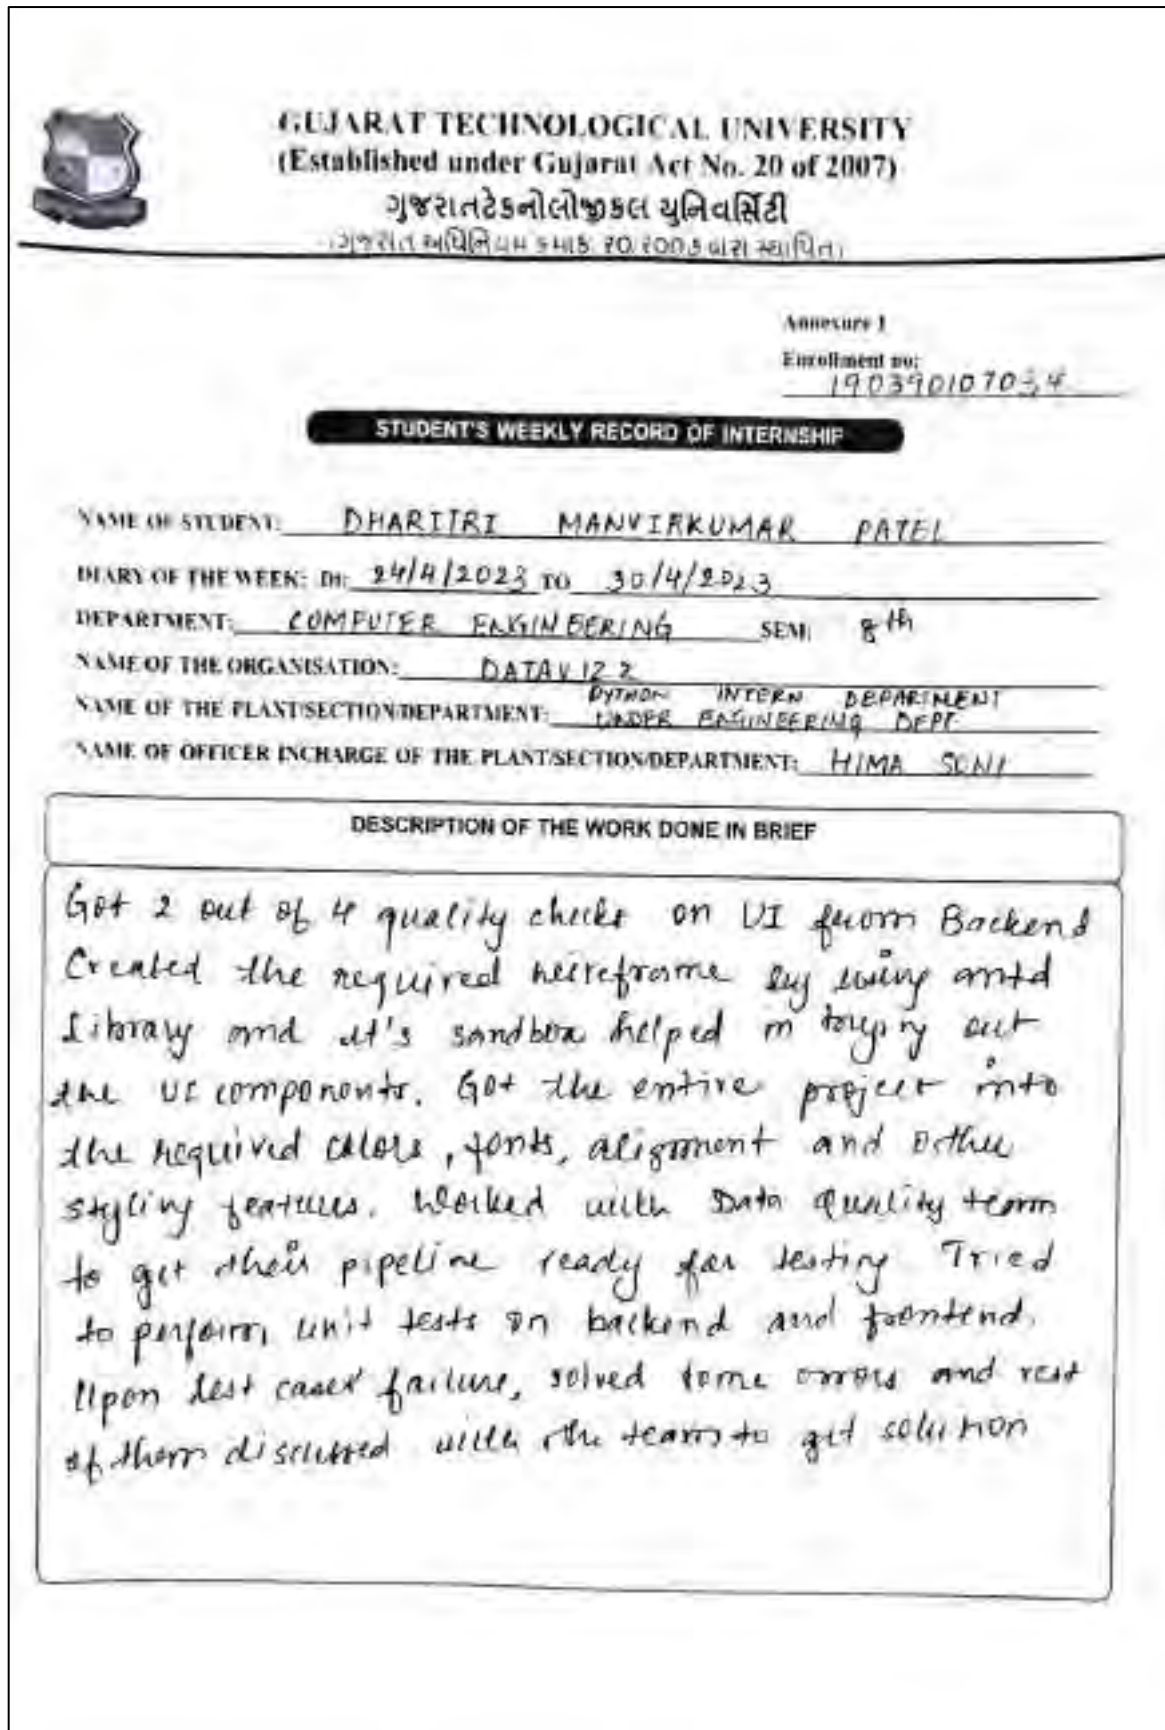 GUJARAT TECHNOLOGICAL UNIVERSITY
(Established under Gujarat Act No. 20 of 2007)
ગુજરાતટેકનોલોજીકલ યુનિવર્સિટી
Annexure 1
Enrollment no:
190390107034
STUDENT'S WEEKLY RECORD OF INTERNSHIP
NAME OF STUDENT: DHARITRI MANVIRKUMAR PATEL
DIARY OF THE WEEK: Dt: 24/4/2023 TO 30/4/2023
DEPARTMENT: COMPUTER ENGINEERING SEM: 8th
NAME OF THE ORGANISATION:
PYTHON INTERN DEPARTMENT
NAME OF THE PLANT/SECTION/DEPARTMENT: UNDER ENGINEERING DEPT
NAME OF OFFICER INCHARGE OF THE PLANT/SECTION/DEPARTMENT: HIMA SONI
DESCRIPTION OF THE WORK DONE IN BRIEF
Got 2 out of 4 quality checks on UI from Backend
Created the required wireframe by using antd
Library and it's sandbox helped in trying out
the UI components. Got the entire project into
the required colors, fonts, alignment and other
styling features. Worked with Data Quality team
to get their pipeline ready for testing Tried
to perform unit tests on backend and frontend.
Upon test cases' failure, solved some errors and rest
of them discussed with the team to get solution